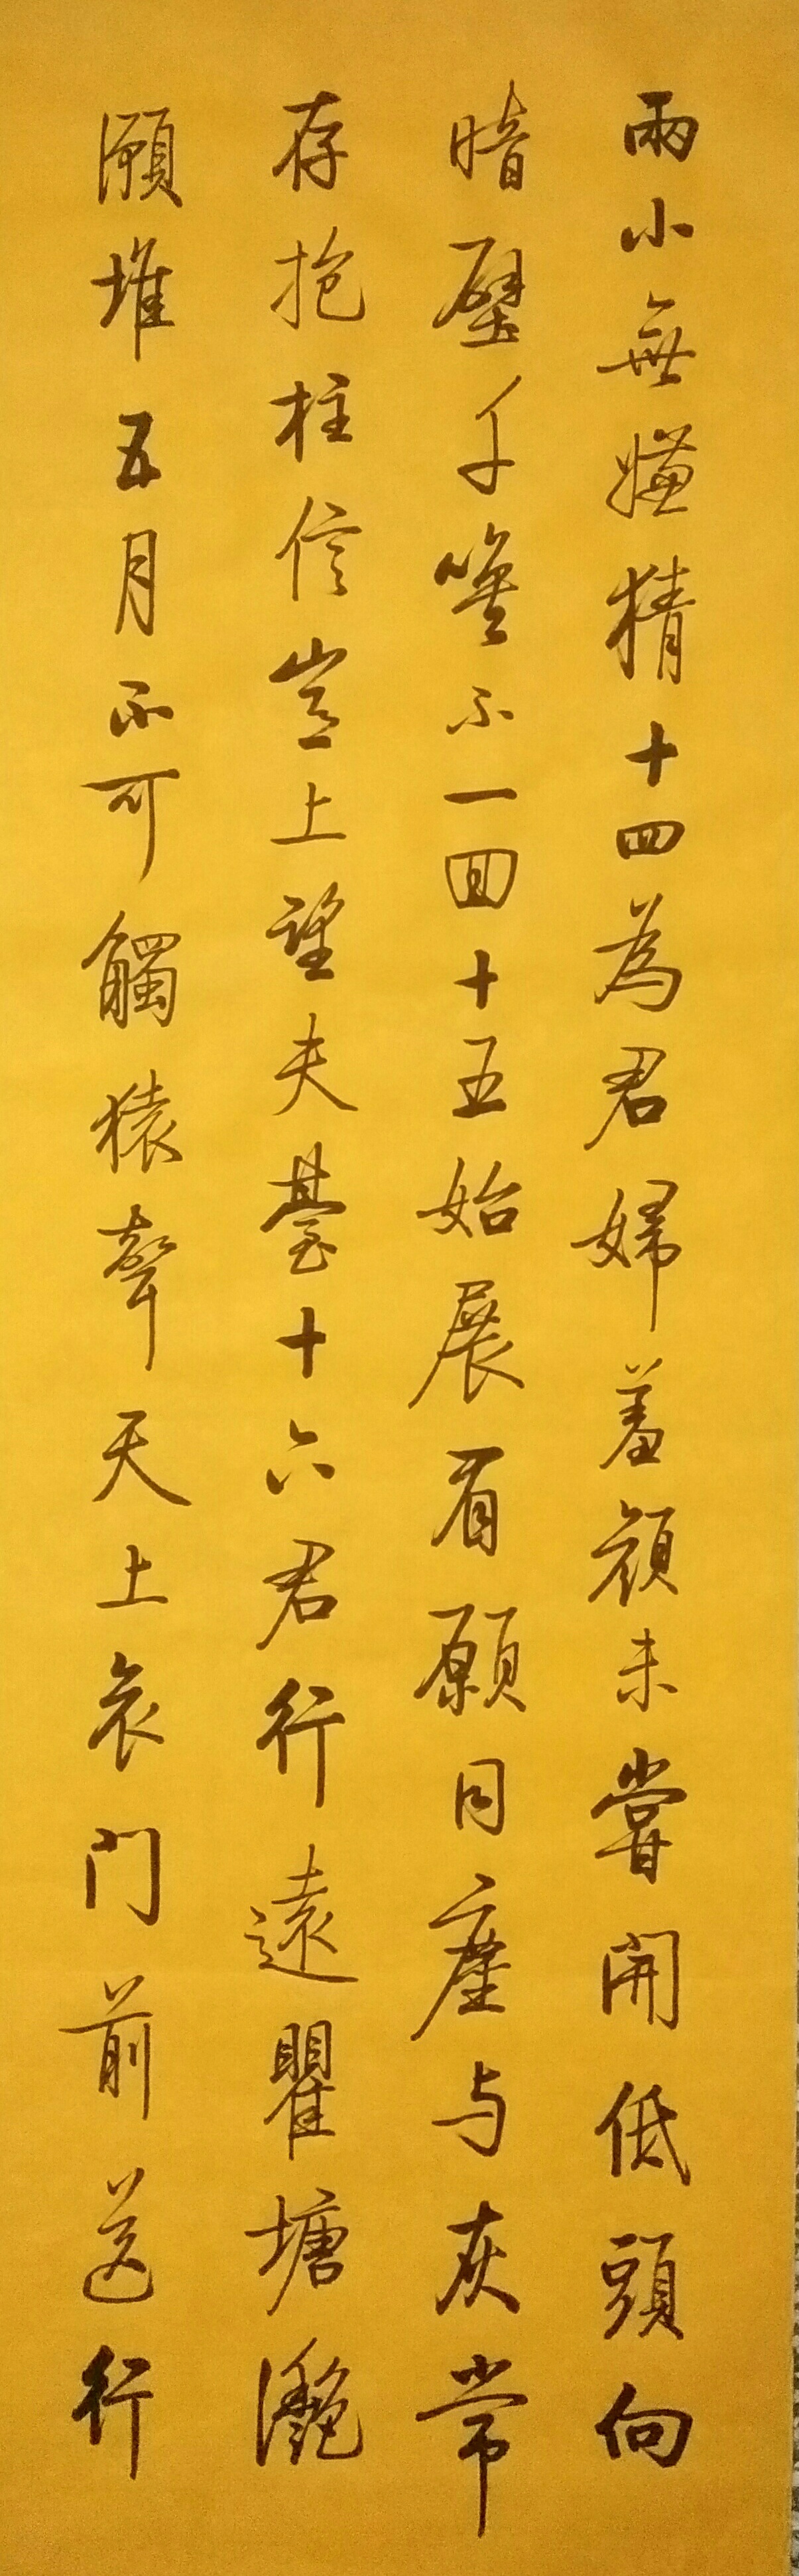 兩小無嫌猜十四為君婦羞顔未嘗開低頭向
暗壁千喚不一回十五始展眉願同塵与灰常
存抱柱信豈上望夫臺十六君行遠瞿塘灔
澦堆五月不可觸猿聲天上哀门前送行